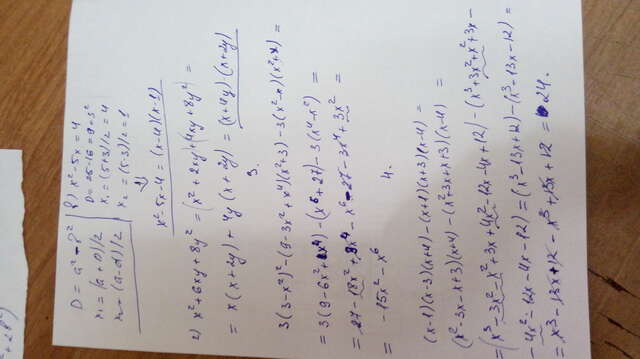 D = a² - b²
x₁ = (a+D)/2
x₂ = (a-D)/2
1) x² - 5x = 4
D = 25 - 16 = 9 = 3²
x₁ = (5+3)/2 = 4
x₂ = (5-3)/2 = 1
⇓
x² - 5x - 4 = (x-4)(x-1)
2) x² + 6xy + 8y² = (x² + 2xy) + (4xy + 8y²) =
= x(x+2y) + 4y(x+2y) = (x+4y)(x+2y)
3.
3(3-x²)² - (9-3x²+x⁴)(x²+3) - 3(x²-x)(x²+x) =
= 3(9-6x²+x⁴) - (x⁶+27) - 3(x⁴-x²) =
= 27 - 18x² + 3x⁴ - x⁶ - 27 - 3x⁴ + 3x² =
= -15x² - x⁶
4.
(x-1)(x-3)(x+4) - (x+1)(x+3)(x-4) =
(x²-3x-x+3)(x+4) - (x²+3x+x+3)(x-4) =
= (x³-3x²-x²+3x+4x²-12x-4x+12) - (x³+3x²+x²+3x-
-4x²-12x-4x-12) = (x³-13x+12) - (x³-13x-12) =
= x³-13x+12-x³+13x+12 = 24.